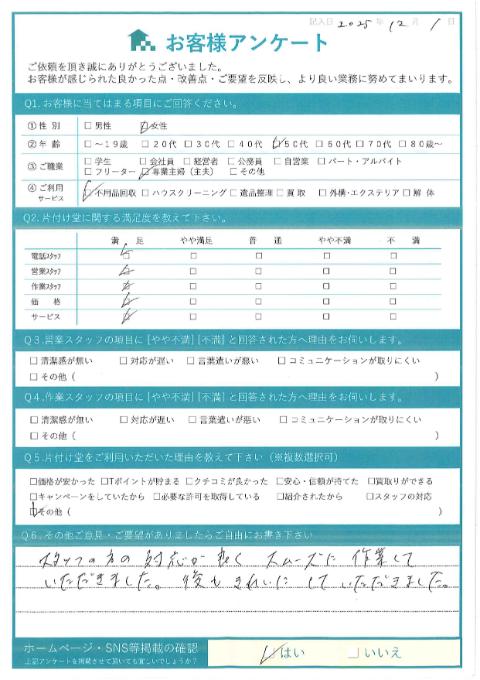 記入日 2025年 12月 1日
お客様アンケート
ご依頼を頂き誠にありがとうございました。
お客様が感じられた良かった点・改善点・ご要望を反映し、より良い業務に努めてまいります。
Q1.お客様に当てはまる項目にご回答ください。
①性別 □男性 □女性
②年齢 □～19歳 □20代 □30代 □40代 □50代 □60代 □70代 □80歳～
③ご職業 □学生 □会社員 □経営者 □公務員 □自営業 □パート・アルバイト
□フリーター □専業主婦(主夫) □その他
④ご利用サービス □不用品回収 □ハウスクリーニング □遺品整理 □買取 □外構・エクステリア □解体
Q2.片付け堂に関する満足度を教えて下さい。
満足 やや満足 普通 やや不満 不満
電話スタッフ □ □ □ □ □
営業スタッフ □ □ □ □ □
作業スタッフ □ □ □ □ □
価格 □ □ □ □ □
サービス □ □ □ □ □
Q3.営業スタッフの項目に[やや不満][不満]と回答された方へ理由をお伺いします。
□清潔感が無い □対応が遅い □言葉遣いが悪い □コミュニケーションが取りにくい
□その他( )
Q4.作業スタッフの項目に[やや不満][不満]と回答された方へ理由をお伺いします。
□清潔感が無い □対応が遅い □言葉遣いが悪い □コミュニケーションが取りにくい
□その他( )
Q5.片付け堂をご利用いただいた理由を教えて下さい(※複数選択可)
□価格が安かった □Tポイントが貯まる □クチコミが良かった □安心・信頼が持てた □買取りができる
□キャンペーンをしていたから □必要な許可を取得している □紹介されたから □スタッフの対応
□その他( )
Q6.その他ご意見・ご要望がありましたらご自由にお書き下さい
スタッフの方の対応が良く スムーズに 作業して
いただきました。後もきれいにしていただきました。
ホームページ・SNS等掲載の確認
上記アンケートを掲載させて頂いても宜しいでしょうか?
□はい □いいえ